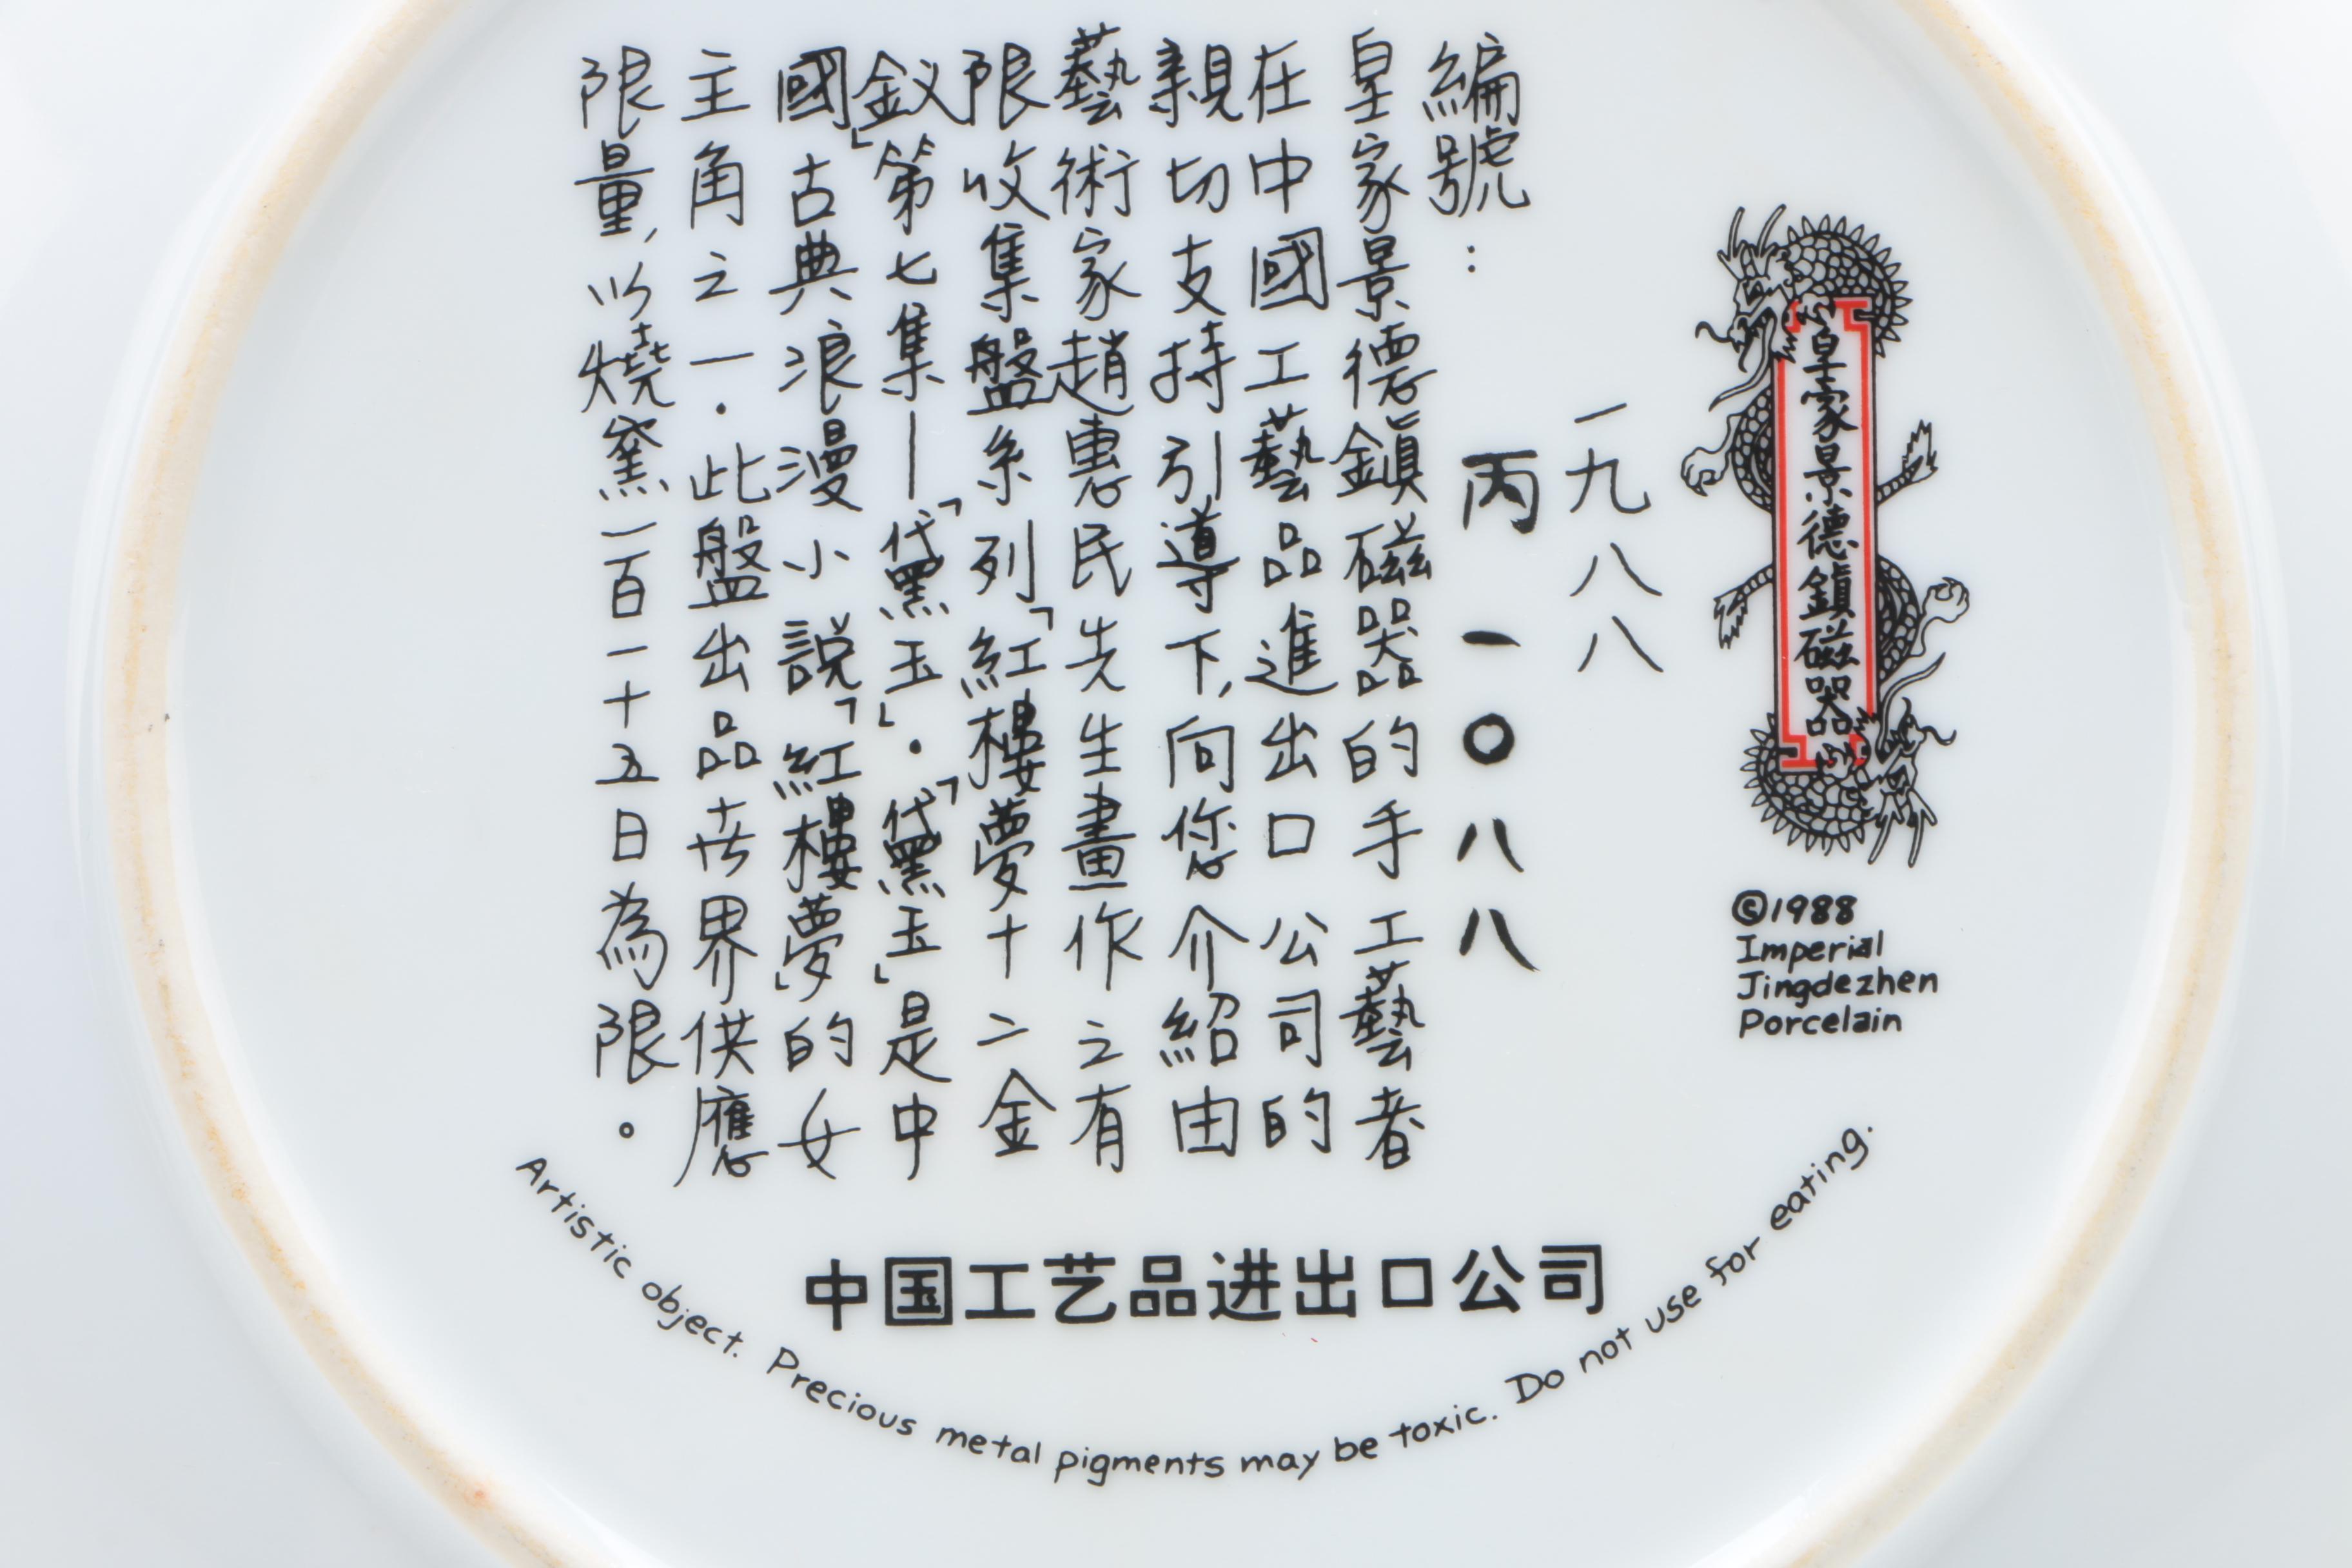 皇家景德鎮磁器
©1988
Imperial
Jingdezhen
Porcelain
一九八八
編號：丙一〇八八
皇家景德鎮磁器的手工藝者
在中國工藝品進出口公司的
親切支持引導下,向您介紹由
藝術家趙惠民先生畫作之有
限收集盤系列「紅樓夢十二金
釵」第七集—「黛玉」.「黛玉」是中
國古典浪漫小說「紅樓夢」的女
主角之一.此盤出品世界供應
限量,以燒窯一百一十五日為限。
中国工艺品进出口公司
Artistic object. Precious metal pigments may be toxic. Do not use for eating.